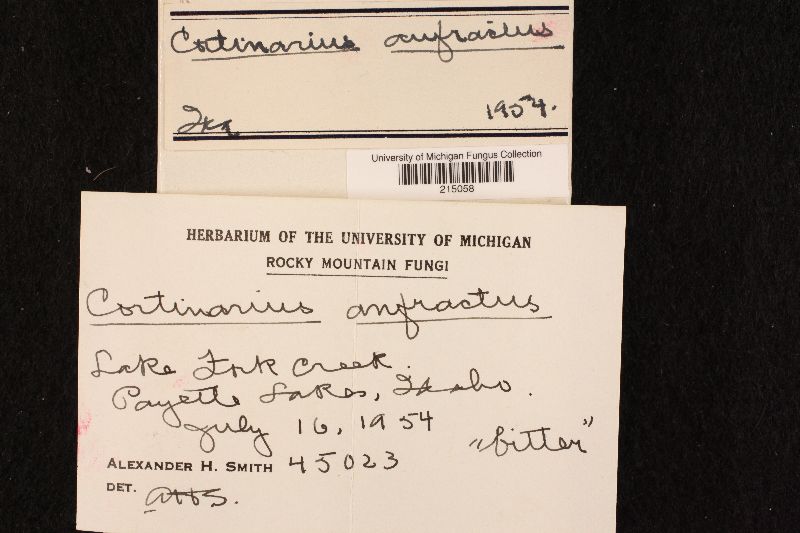 Cortinarius anfractus
Ida. 1954.
University of Michigan Fungus Collection
215058
HERBARIUM OF THE UNIVERSITY OF MICHIGAN
ROCKY MOUNTAIN FUNGI
Cortinarius anfractus
Lake Fork Creek.
Payette Lakes, Idaho.
July 16, 1954
"bitter"
ALEXANDER H. SMITH 45023
DET. AHS.